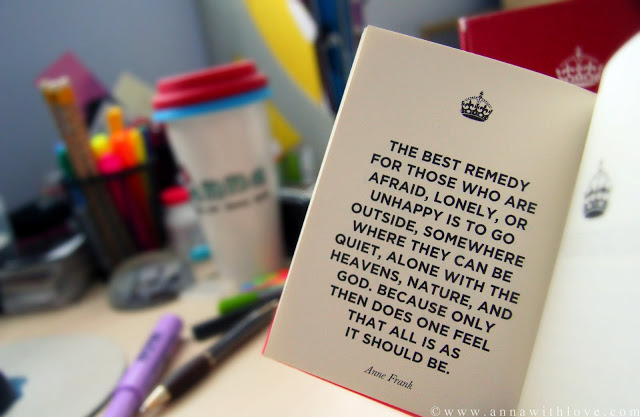 THE BEST REMEDY
FOR THOSE WHO ARE
AFRAID, LONELY, OR
UNHAPPY IS TO GO
OUTSIDE, SOMEWHERE
WHERE THEY CAN BE
QUIET, ALONE WITH THE
HEAVENS, NATURE, AND
GOD. BECAUSE ONLY
THEN DOES ONE FEEL
THAT ALL IS AS
IT SHOULD BE.
Anne Frank
©www.annawithlove.com